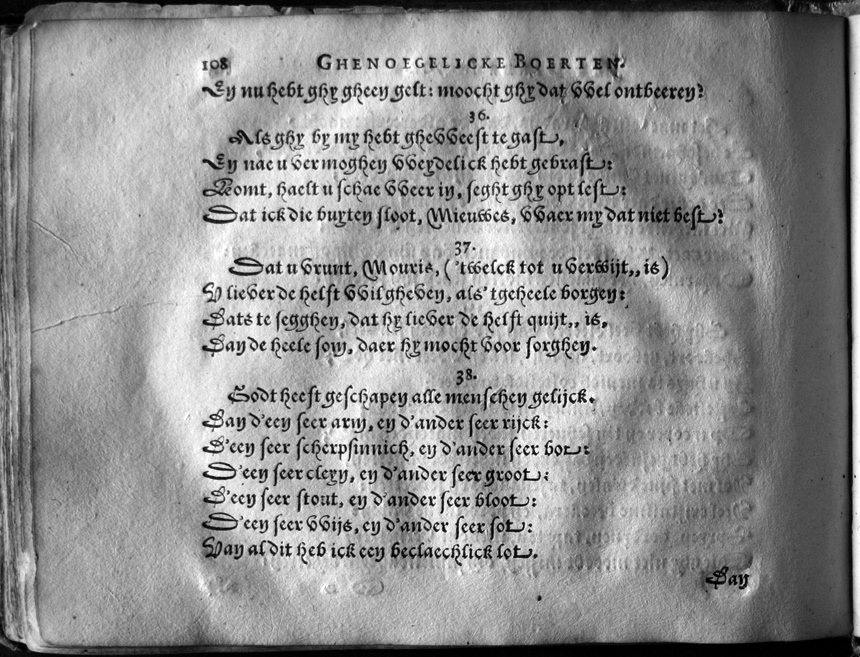 108 GHENOEGELICKE BOERTEN.
En nu hebt ghy gheen gelt: moocht ghy dat VVel ontbeeren?
36.
Als ghy by my hebt gheVVeest te gast,
En nae u vermoghen VVeydelick hebt gebrast:
Komt, haelt u schae VVeer in, seght ghy opt lest:
Dat ick die buyten sloot, Mieuwes, VVaer my dat niet best?
37.
Dat u vrunt, Mouris, ('twelck tot u verwijt,, is)
V liever de helft VVil gheven, als 't geheele borgen:
Dats te segghen, dat hy liever de helft quijt,, is,
Dan de heele som, daer hy mocht voor sorghen.
38.
Godt heeft geschapen alle menschen gelijck.
Dan d'een seer arm, en d'ander seer rijck:
D'een seer scherpsinnich, en d'ander seer bot:
D'een seer cleyn, en d'ander seer groot:
D'een seer stout, en d'ander seer bloot:
D'een seer VVijs, en d'ander seer sot:
Van al dit heb ick een beclaechlick lot.
Dan